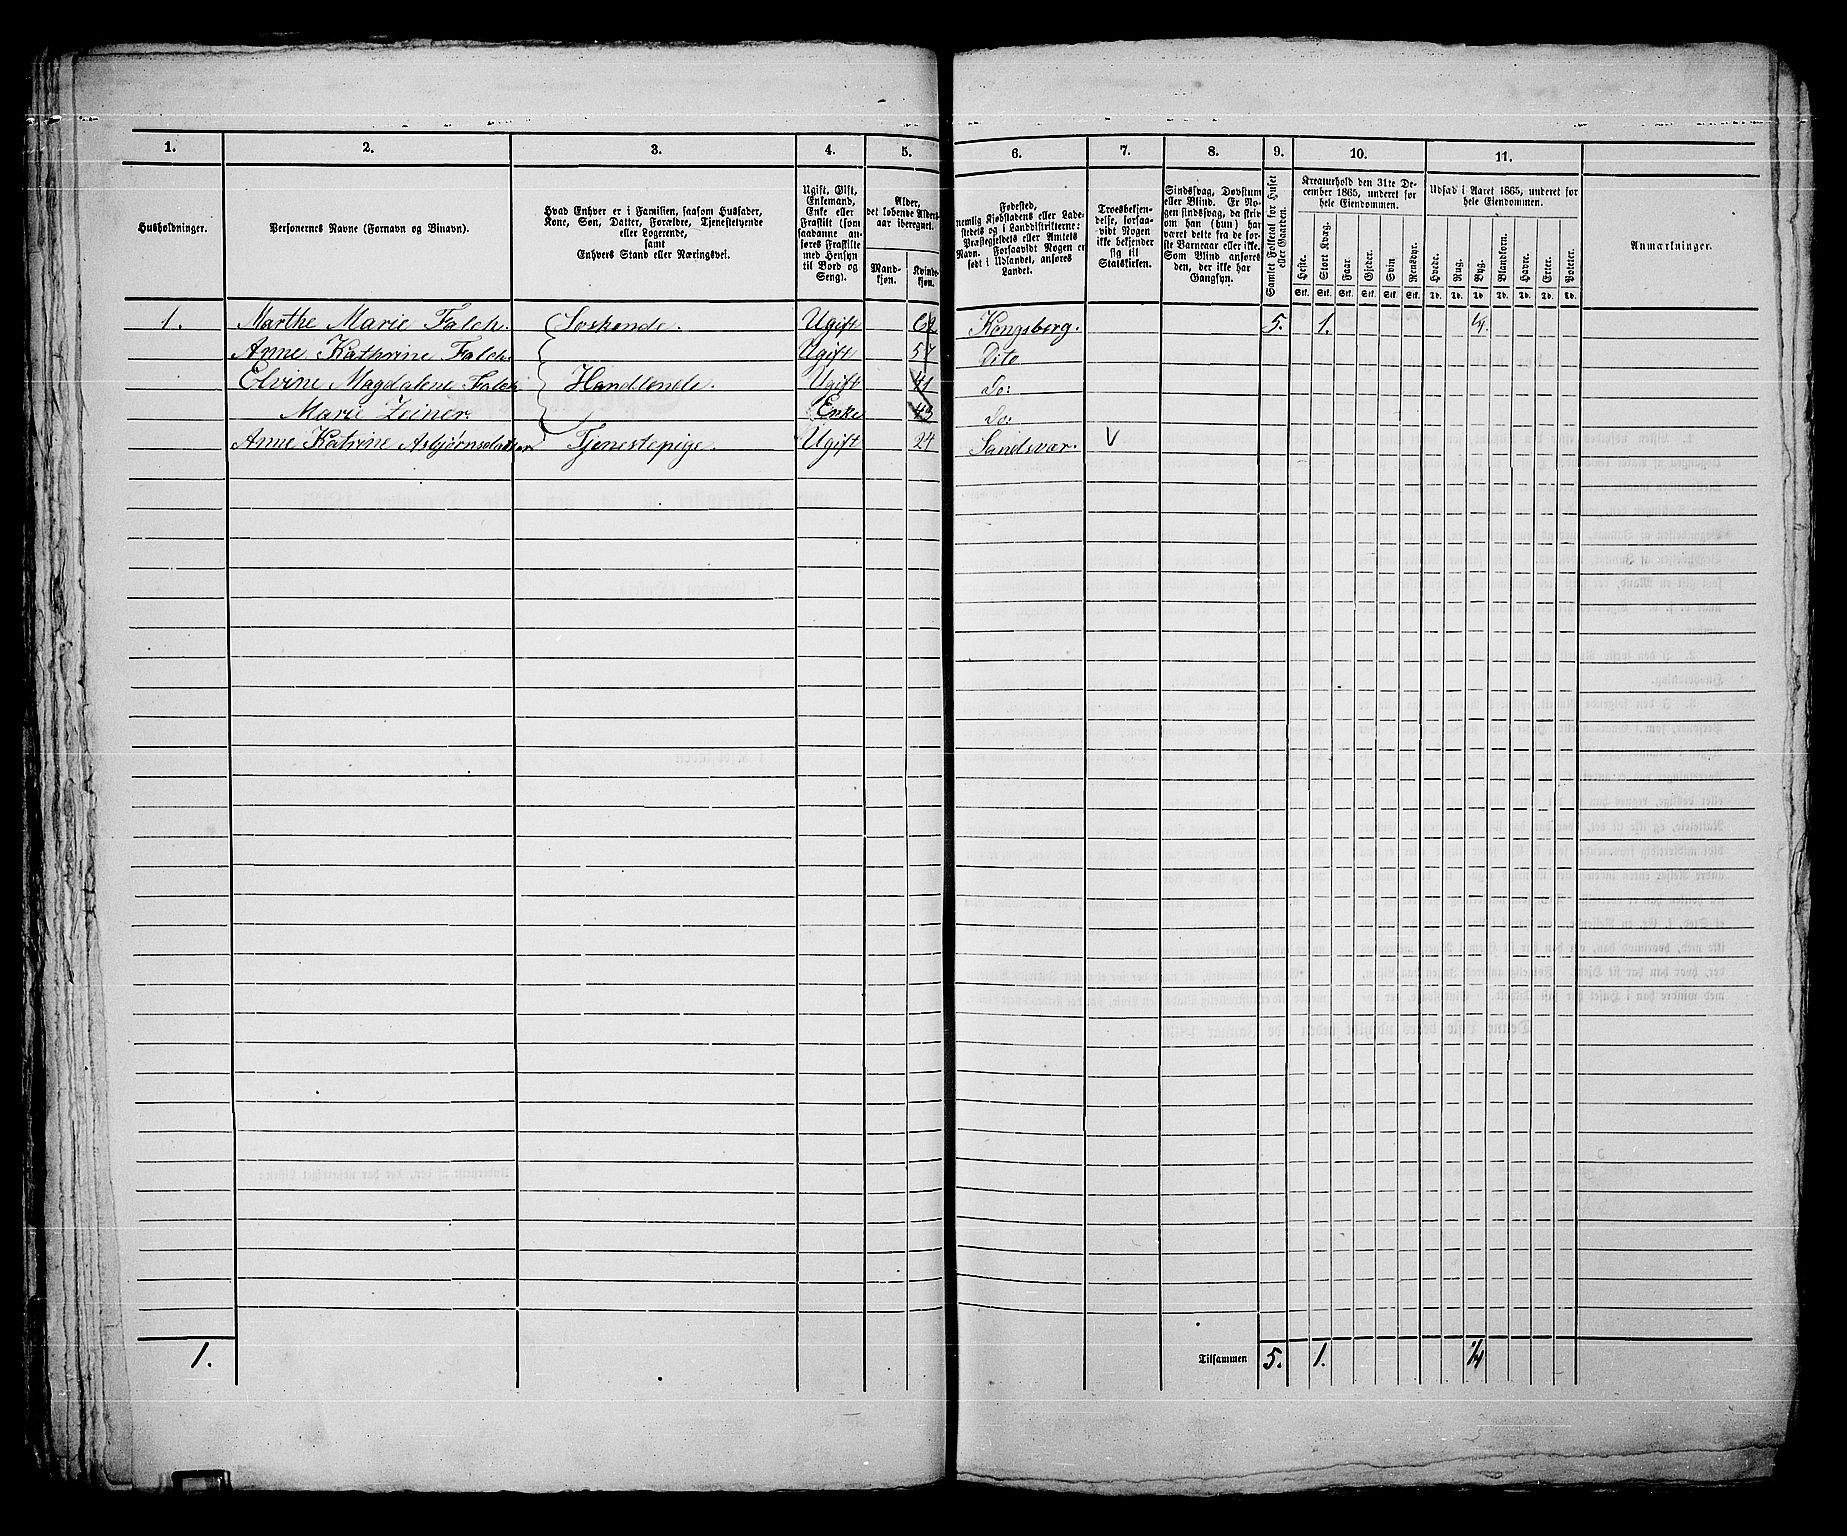 1. 2. 3. 4. 5. 6. 7. 8. 9. 10. 11.
Husholdninger.
Personernes Navne (Fornavn og Binavn).
Hvad Enhver er i Familien, saasom Husfader,
Kone, Søn, Datter, Forældre, Tjenestetyende
eller Logerende,
samt
Enhvers Stand eller Næringsvei.
Ugift, Gift,
Enkemand,
Enke eller
Fraskilt (som
saadanne an-
føres Fraskilte
med Hensyn
til Bord og
Seng).
Alder,
det løbende Alders-
aar iberegnet.
Mand-
kjøn.
Kvinde-
kjøn.
Fødested,
nemlig Kjøbstadens eller Lade-
stedets og i Landdistrikterne:
Præstegjeldets eller Amtets
Navn. Forsaavidt Nogen er
født i Udlandet, anføres
Landet.
Troesbekjen-
delse, forsaa-
vidt Nogen
ikke bekjender
sig til
Statskirken.
Sindssvag, Døvstum
eller Blind. Er No-
gen sindssvag, da skriv
om han (hun) har
været dette fra de før-
ste Barneaar eller ikke.
Som Blind anføres
den, der ikke har
Gangsyn.
Samlet Folketal for Huset
eller Gaarden.
Kreaturhold den 31te De-
cember 1865, underet for
hele Eiendommen.
Heste. Stort Kvæg. Faar. Gjeder. Svin. Rensdyr.
Stk. Stk. Stk. Stk. Stk. Stk.
Udsæd i Aaret 1865, underet for
hele Eiendommen.
Hvede. Rug. Byg. Blandkorn. Havre. Erter. Poteter.
Td. Td. Td. Td. Td. Td. Td.
Anmærkninger.
1. Marthe Marie Falch. Søskende. Ugift 62 Kongsberg. 5. 1. 1/4.
Anne Kathrine Falch. Ugift 57 Dito
Elvine Magdalene Falch Handlende. Ugift 41 Do:
Marie Zeiner. Enke 43 Do:
Anne Katrine Asbjørnsdatter Tjenestepige. Ugift 24 Sandsvær. V
1. Tilsammen 5. 1. 1/4